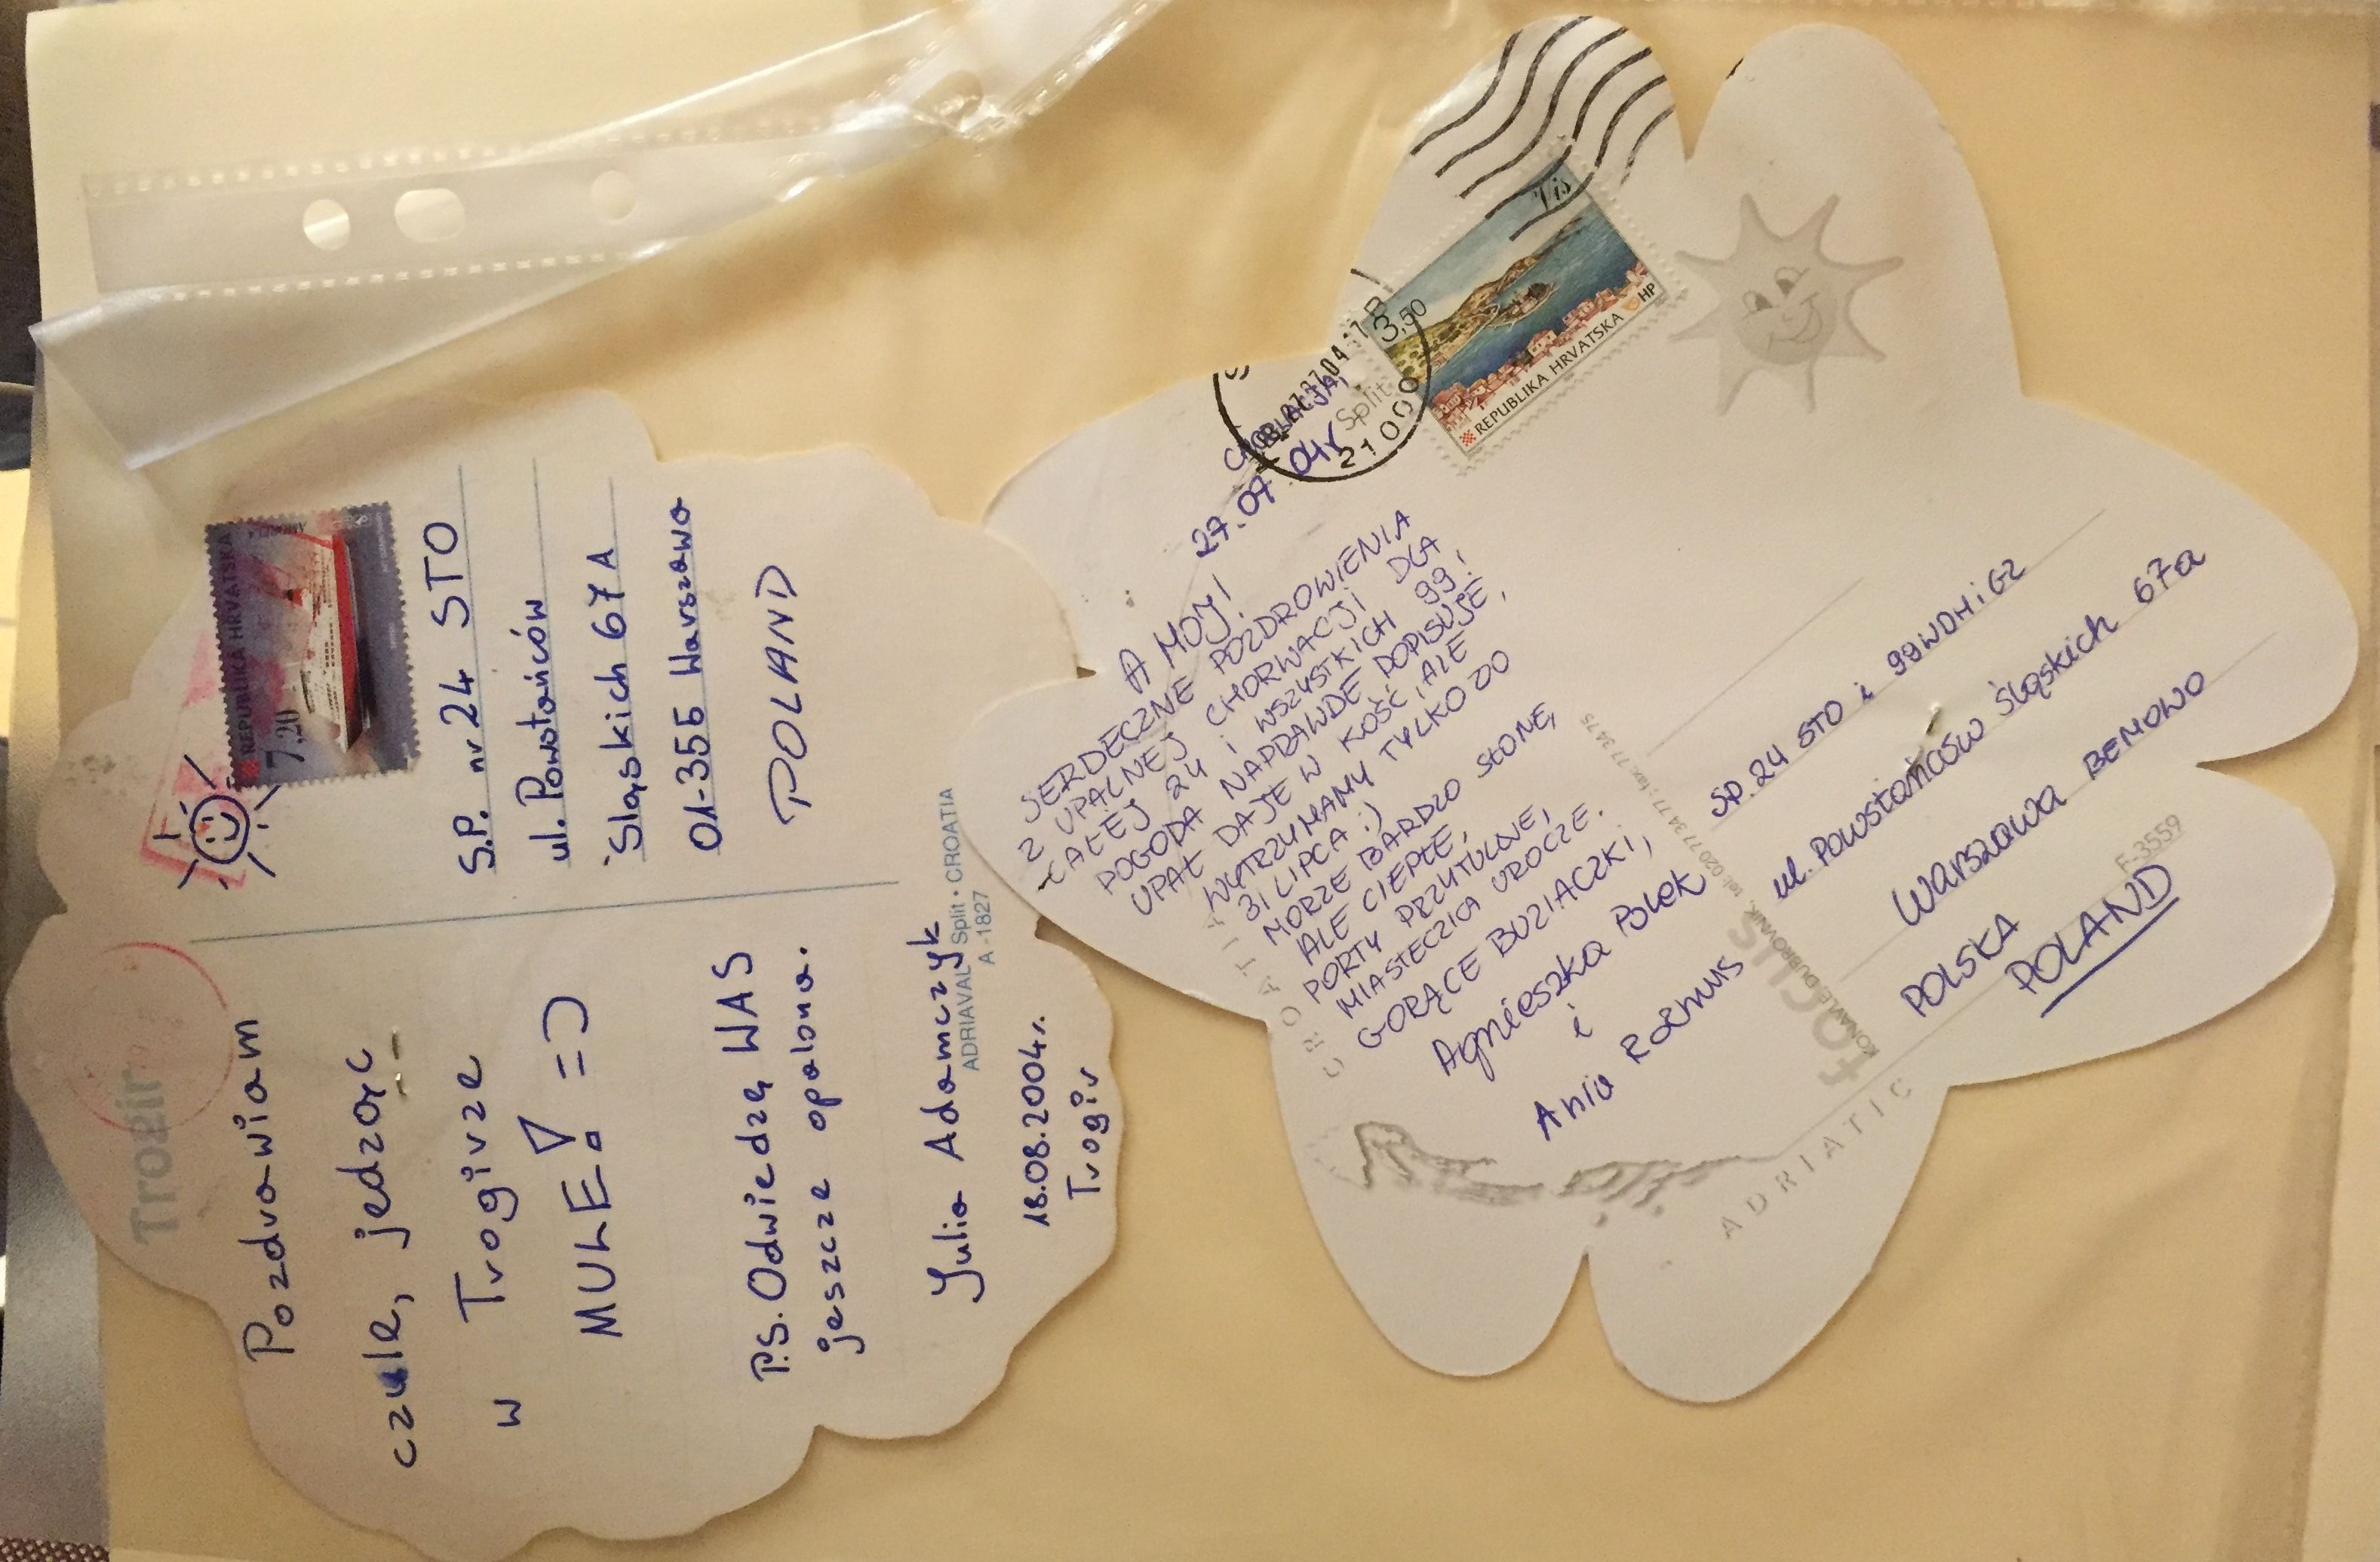 Trogir
Pozdrawiam
czule, jedząc
w Trogirze
MULE! =)
P.S. Odwiedzę WAS
jeszcze opalona.
Julia Adamczyk
18.08.2004r.
Trogir
REPUBLIKA HRVATSKA
7.20
S.P. nr 24 STO
ul. Powstańców
Śląskich 67A
01-355 Warszawa
POLAND
ADRIAVAL Split • CROATIA
A-1827
CHORWACJA,
27.07.04r
AHOJ!
SERDECZNE POZDROWIENIA
Z UPALNEJ CHORWACJI DLA
CAŁEJ 24 I WSZYSTKICH 99!
POGODA NAPRAWDĘ DOPISUJE,
UPAŁ DAJE W KOŚĆ, ALE
WYTRZYMAMY TYLKO DO
31 LIPCA :)
MORZE BARDZO SŁONE,
ALE CIEPŁE,
PORTY PRZYTULNE,
MIASTECZKA UROCZE.
GORĄCE BUZIACZKI,
Agnieszka Polek
i
Ania Rozmus
Split
21000
3,50
Vis
REPUBLIKA HRVATSKA
HP
SP.24 STO i 99WDHiGZ
ul. Powstańców Śląskich 67a
Warszawa BEMOWO
POLSKA
POLAND
focus
KONAVLE, DUBROVNIK, tel: 020 773 477; fax: 773 475
F-3559
CROATIA
ADRIATIC